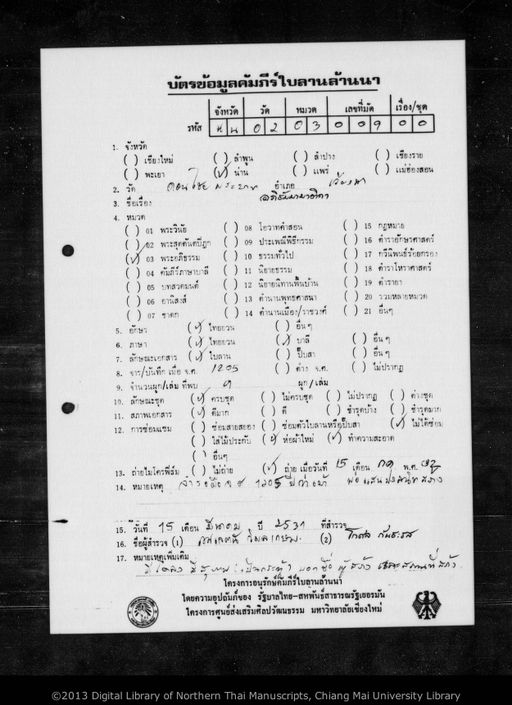 บัตรข้อมูลคัมภีร์ใบลานล้านนา
จังหวัด วัด หมวด เลขที่มัด เรื่อง/ชุด
รหัส น น 0 2 0 3 0 0 9 0 0
1. จังหวัด
( ) เชียงใหม่ ( ) ลำพูน ( ) ลำปาง ( ) เชียงราย
( ) พะเยา (✓) น่าน ( ) แพร่ ( ) แม่ฮ่องสอน
2. วัด อำเภอ
3. ชื่อเรื่อง
4. หมวด
( ) 01 พระวินัย ( ) 08 โอวาทคำสอน ( ) 15 กฎหมาย
( ) 02 พระสุตตันตปิฎก ( ) 09 ประเพณีพิธีกรรม ( ) 16 ตำราโหราศาสตร์
(✓) 03 พระอภิธรรม ( ) 10 ธรรมทั่วไป ( ) 17 กวีนิพนธ์ร้อยกรอง
( ) 04 คัมภีร์ภาษาบาลี ( ) 11 นิยายธรรม ( ) 18
( ) 05 บทสวดมนต์ ( ) 12 นิยายนิทานพื้นบ้าน ( ) 19 ตำรายา
( ) 06 อานิสงส์ ( ) 13 ตำนานพุทธศาสนา ( ) 20 รวมหลายหมวด
( ) 07 ชาดก ( ) 14 ตำนานเมือง/ราชวงศ์ ( ) 21 อื่นๆ
5. อักษร (✓) ไทยยวน ( ) อื่นๆ
6. ภาษา (✓) ไทยยวน (✓) บาลี ( ) อื่นๆ
7. ลักษณะเอกสาร (✓) ใบลาน ( ) ปั๊บสา ( ) อื่นๆ
8. จาร/บันทึก เมื่อ จ.ศ. 1205 ( ) ต่าง จ.ศ. ( ) ไม่ปรากฏ
9. จำนวนผูก/เล่ม ที่พบ ผูก/เล่ม
10. ลักษณะชุด (✓) ครบชุด ( ) ไม่ครบชุด ( ) ไม่ปรากฏ ( ) ต่างชุด
11. สภาพเอกสาร (✓) ดีมาก ( ) ดี ( ) ชำรุดบ้าง ( ) ชำรุดมาก
12. การซ่อมแซม ( ) ซ่อมสายสยอง ( ) ซ่อมตัวใบลานหรือปั๊บสา (✓) ไม่ได้ซ่อม
( ) ใส่ไม้ประกับ (✓) ห่อผ้าใหม่ (✓) ทำความสะอาด
( ) อื่นๆ
13. ถ่ายไมโครฟิล์ม ( ) ไม่ถ่าย (✓) ถ่าย เมื่อวันที่ 15 เดือน กค พ.ศ. 32
14. หมายเหตุ
15. วันที่ 15 เดือน มีนาคม ปี 2531 ที่สำรวจ
16. ชื่อผู้สำรวจ (1) (2)
17. หมายเหตุเพิ่มเติม
โครงการอนุรักษ์คัมภีร์ใบลานล้านนา
โดยความอุปถัมภ์ของ รัฐบาลไทย-สหพันธ์สาธารณรัฐเยอรมัน
โครงการศูนย์ส่งเสริมศิลปวัฒนธรรม มหาวิทยาลัยเชียงใหม่
©2013 Digital Library of Northern Thai Manuscripts, Chiang Mai University Library